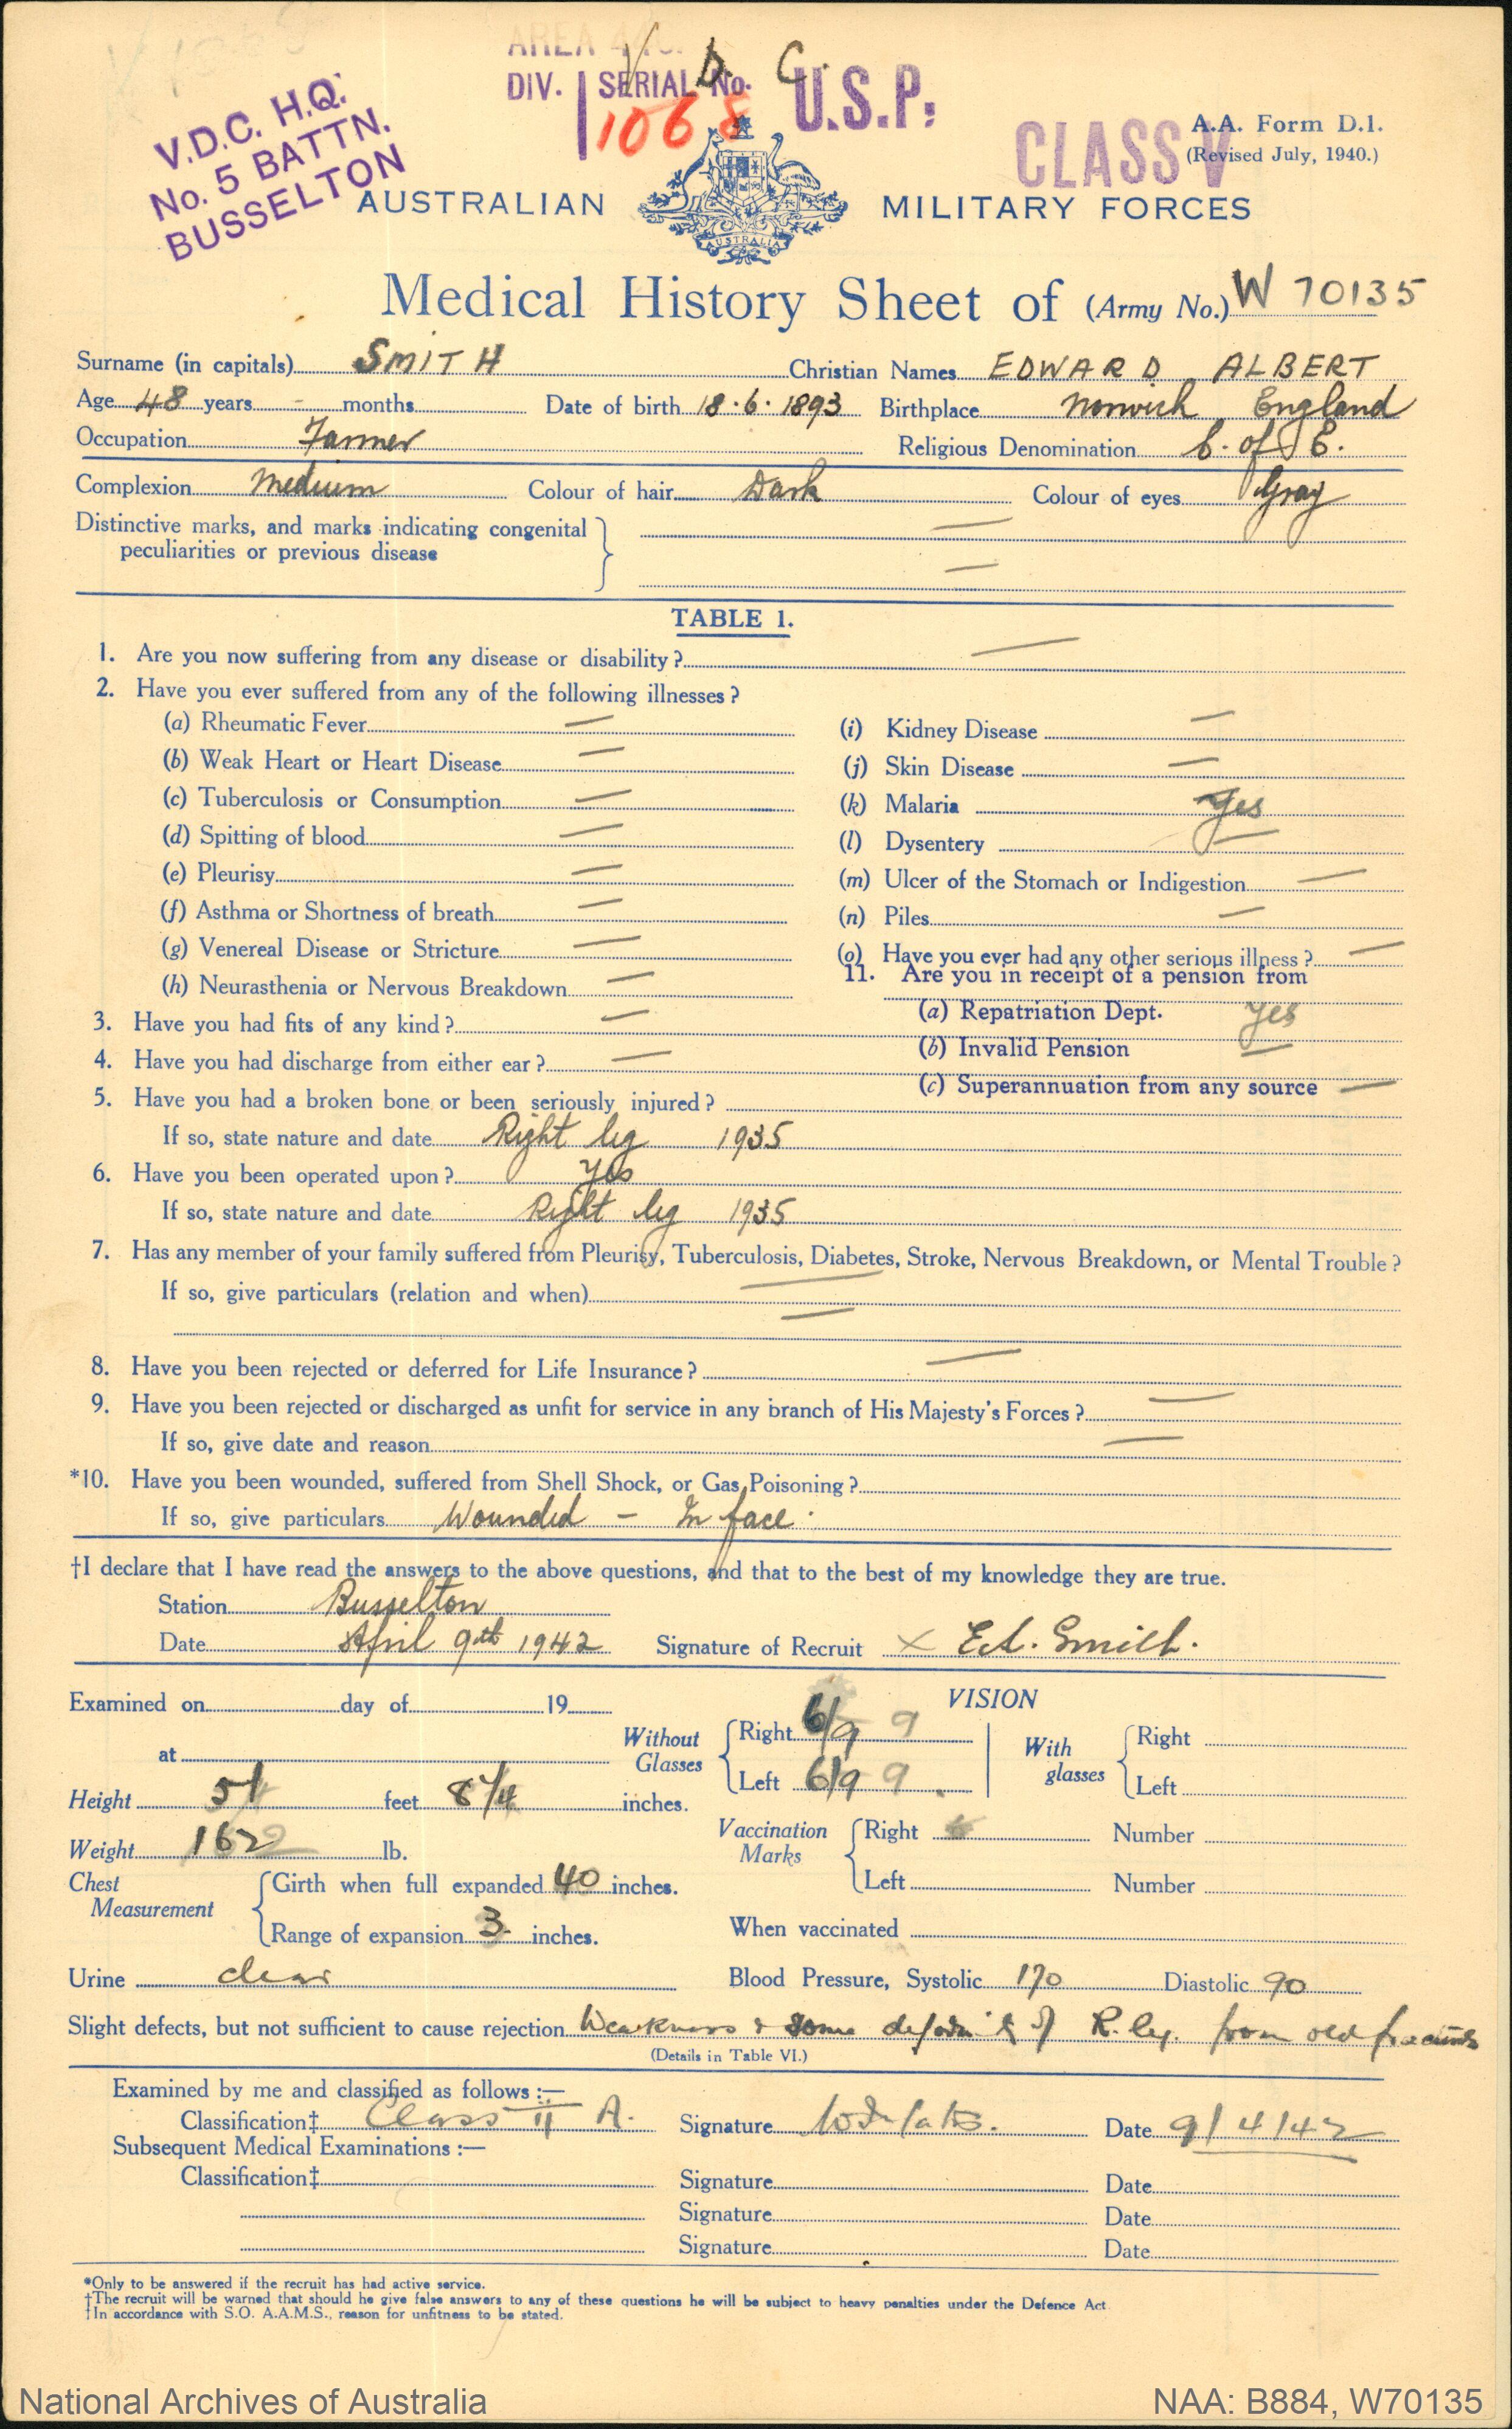 AREA
V. D. C.
DIV. SERIAL No. U.S.P.
1068
V.D.C. H.Q.
No. 5 BATTN.
BUSSELTON
CLASS V
A.A. Form D.1.
(Revised July, 1940.)
AUSTRALIAN MILITARY FORCES
AUSTRALIA
Medical History Sheet of (Army No.) W 70135
Surname (in capitals) SMITH Christian Names EDWARD ALBERT
Age 48 years - months Date of birth 18.6.1893 Birthplace Norwich England
Occupation Farmer Religious Denomination C. of E.
Complexion Medium Colour of hair Dark Colour of eyes Gray
Distinctive marks, and marks indicating congenital —
peculiarities or previous disease —
TABLE 1.
1. Are you now suffering from any disease or disability? —
2. Have you ever suffered from any of the following illnesses?
(a) Rheumatic Fever —
(b) Weak Heart or Heart Disease —
(c) Tuberculosis or Consumption —
(d) Spitting of blood —
(e) Pleurisy —
(f) Asthma or Shortness of breath —
(g) Venereal Disease or Stricture —
(h) Neurasthenia or Nervous Breakdown —
(i) Kidney Disease —
(j) Skin Disease —
(k) Malaria Yes
(l) Dysentery —
(m) Ulcer of the Stomach or Indigestion —
(n) Piles —
(o) Have you ever had any other serious illness? —
11. Are you in receipt of a pension from
(a) Repatriation Dept. Yes
(b) Invalid Pension —
(c) Superannuation from any source —
3. Have you had fits of any kind? —
4. Have you had discharge from either ear? —
5. Have you had a broken bone or been seriously injured?
If so, state nature and date Right leg 1935
6. Have you been operated upon? Yes
If so, state nature and date Right leg 1935
7. Has any member of your family suffered from Pleurisy, Tuberculosis, Diabetes, Stroke, Nervous Breakdown, or Mental Trouble?
If so, give particulars (relation and when) —
—
8. Have you been rejected or deferred for Life Insurance? —
9. Have you been rejected or discharged as unfit for service in any branch of His Majesty's Forces? —
If so, give date and reason —
*10. Have you been wounded, suffered from Shell Shock, or Gas Poisoning?
If so, give particulars Wounded - In face.
†I declare that I have read the answers to the above questions, and that to the best of my knowledge they are true.
Station Busselton
Date April 9th 1942 Signature of Recruit x E.A. Smith.
Examined on day of 19
at
VISION
Without Glasses Right 6/9 9
Left 6/9 9
With glasses Right
Left
Height 5 feet 8 1/4 inches.
Weight 162 lb.
Vaccination Marks Right Number
Left Number
Chest Measurement Girth when full expanded 40 inches.
Range of expansion 3 inches.
When vaccinated
Urine clear Blood Pressure, Systolic 170 Diastolic 90
Slight defects, but not sufficient to cause rejection Weakness & some deformity of R. leg. from old fracture
(Details in Table VI.)
Examined by me and classified as follows :—
Classification‡ Class II A. Signature Date 9/4/42
Subsequent Medical Examinations :—
Classification‡ Signature Date
Signature Date
Signature Date
*Only to be answered if the recruit has had active service.
†The recruit will be warned that should he give false answers to any of these questions he will be subject to heavy penalties under the Defence Act
‡In accordance with S.O. A.A.M.S., reason for unfitness to be stated.
National Archives of Australia NAA: B884, W70135